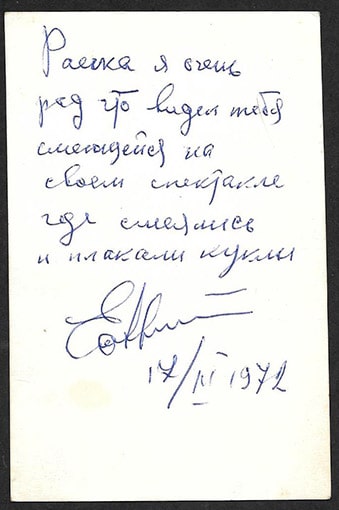 Раечка я очень
рад что видел тебя
смеющейся на
своем спектакле
где смеялись
и плакали куклы
17/III 1972